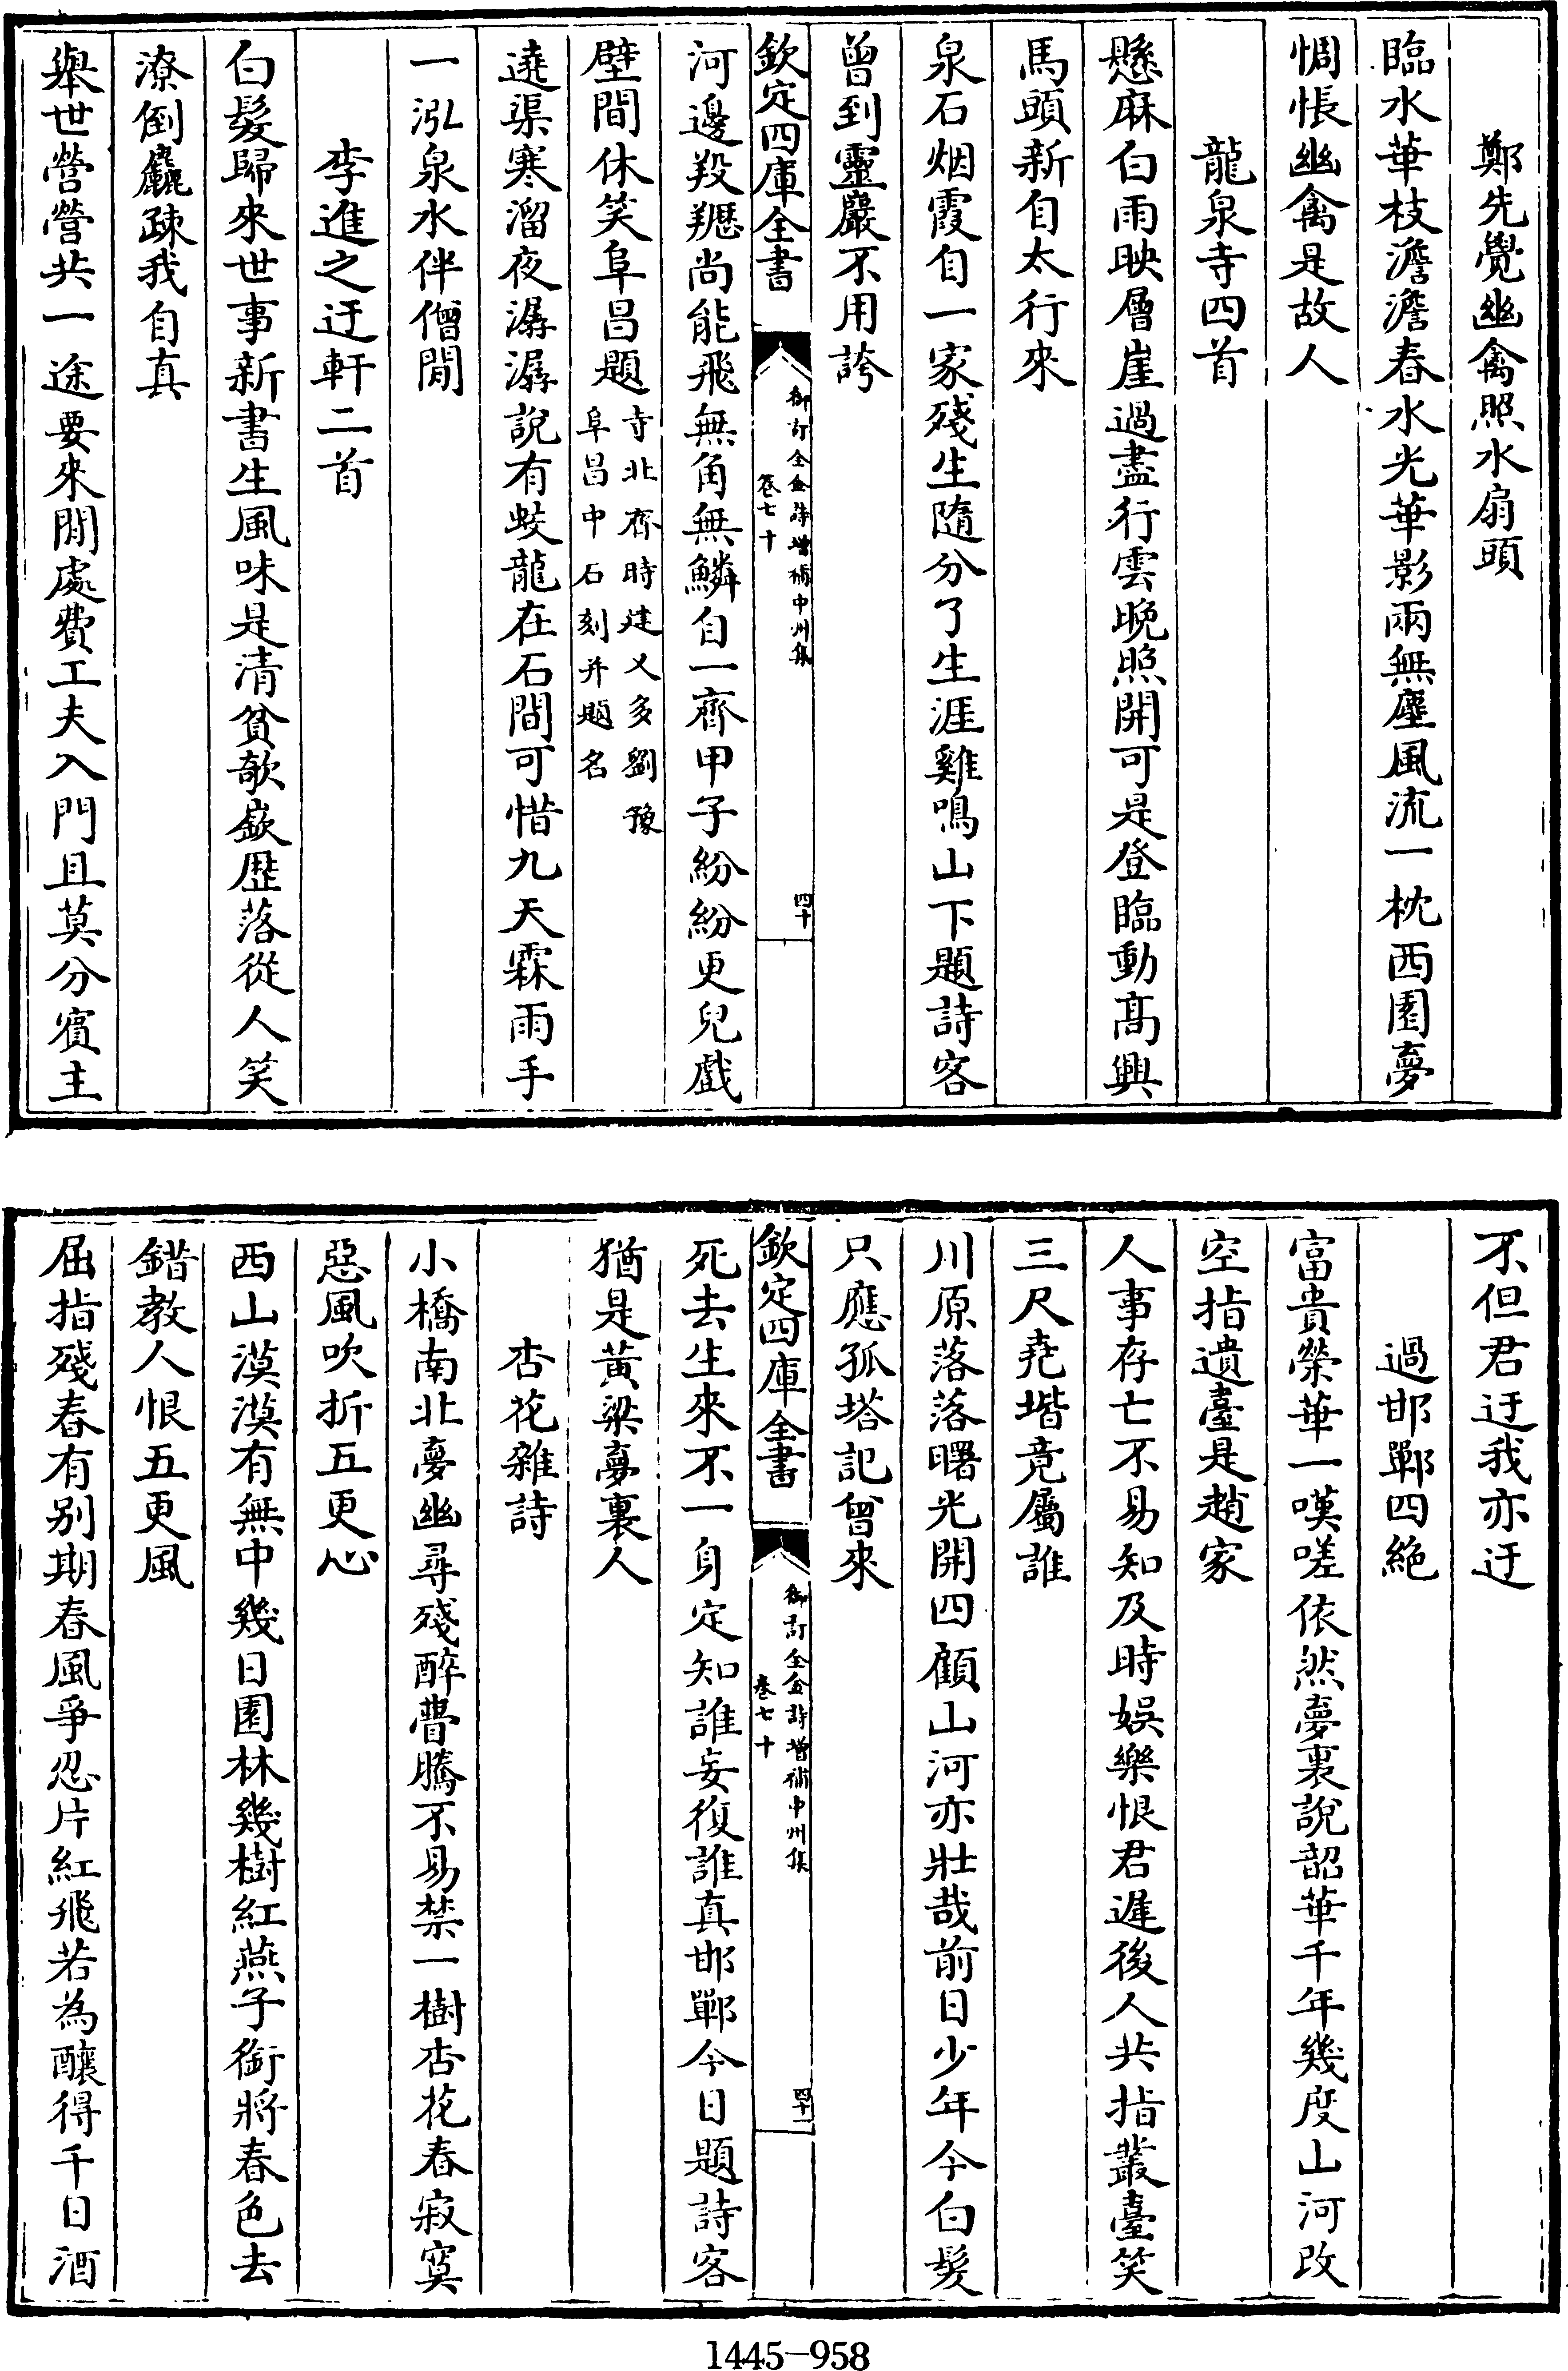 鄭先覺幽禽照水扇頭
臨水華枝澹澹春水光華影兩無塵風流一枕西園夢
惆悵幽禽是故人
龍泉寺四首
懸麻白雨映層崖過盡行雲晚照開可是登臨動髙興
馬頭新自太行來
泉石烟霞自一家殘生隨分了生涯雞鳴山下題詩客
曾到靈巖不用誇
欽定四庫全書
御訂全金詩增補中州集
卷七十
四十
河邊羖䍽尚能飛無角無鱗自一齊甲子紛紛更兒戲
壁間休笑阜昌題寺北齊時建又多劉豫
阜昌中石刻并題名
遶渠寒溜夜潺潺說有蛟龍在石間可惜九天霖雨手
一泓泉水伴僧閒
李進之迂軒二首
白髮歸來世事新書生風味是清貧欹嶔歷落從人笑
潦倒麤疎我自真
舉世營營共一途要來閒處費工夫入門且莫分賓主
不但君迂我亦迂
過邯鄲四絶
富貴榮華一嘆嗟依然夢裏說韶華千年幾度山河改
空指遺臺是趙家
人事存亡不易知及時娯樂恨君遲後人共指叢臺笑
三尺堯堦竟屬誰
川原落落曙光開四顧山河亦壯哉前日少年今白髮
只應孤塔記曾來
欽定四庫全書
御訂全金詩增補中州集
卷七十
四十一
死去生來不一身定知誰妄復誰真邯鄲今日題詩客
猶是黃粱夢裏人
杏花雜詩
小橋南北夢幽尋殘醉瞢騰不易禁一樹杏花春寂寞
惡風吹折五更心
西山漠漠有無中幾日園林幾樹紅燕子銜將春色去
錯教人恨五更風
屈指殘春有别期春風爭忍片紅飛若為釀得千日酒
1445-958